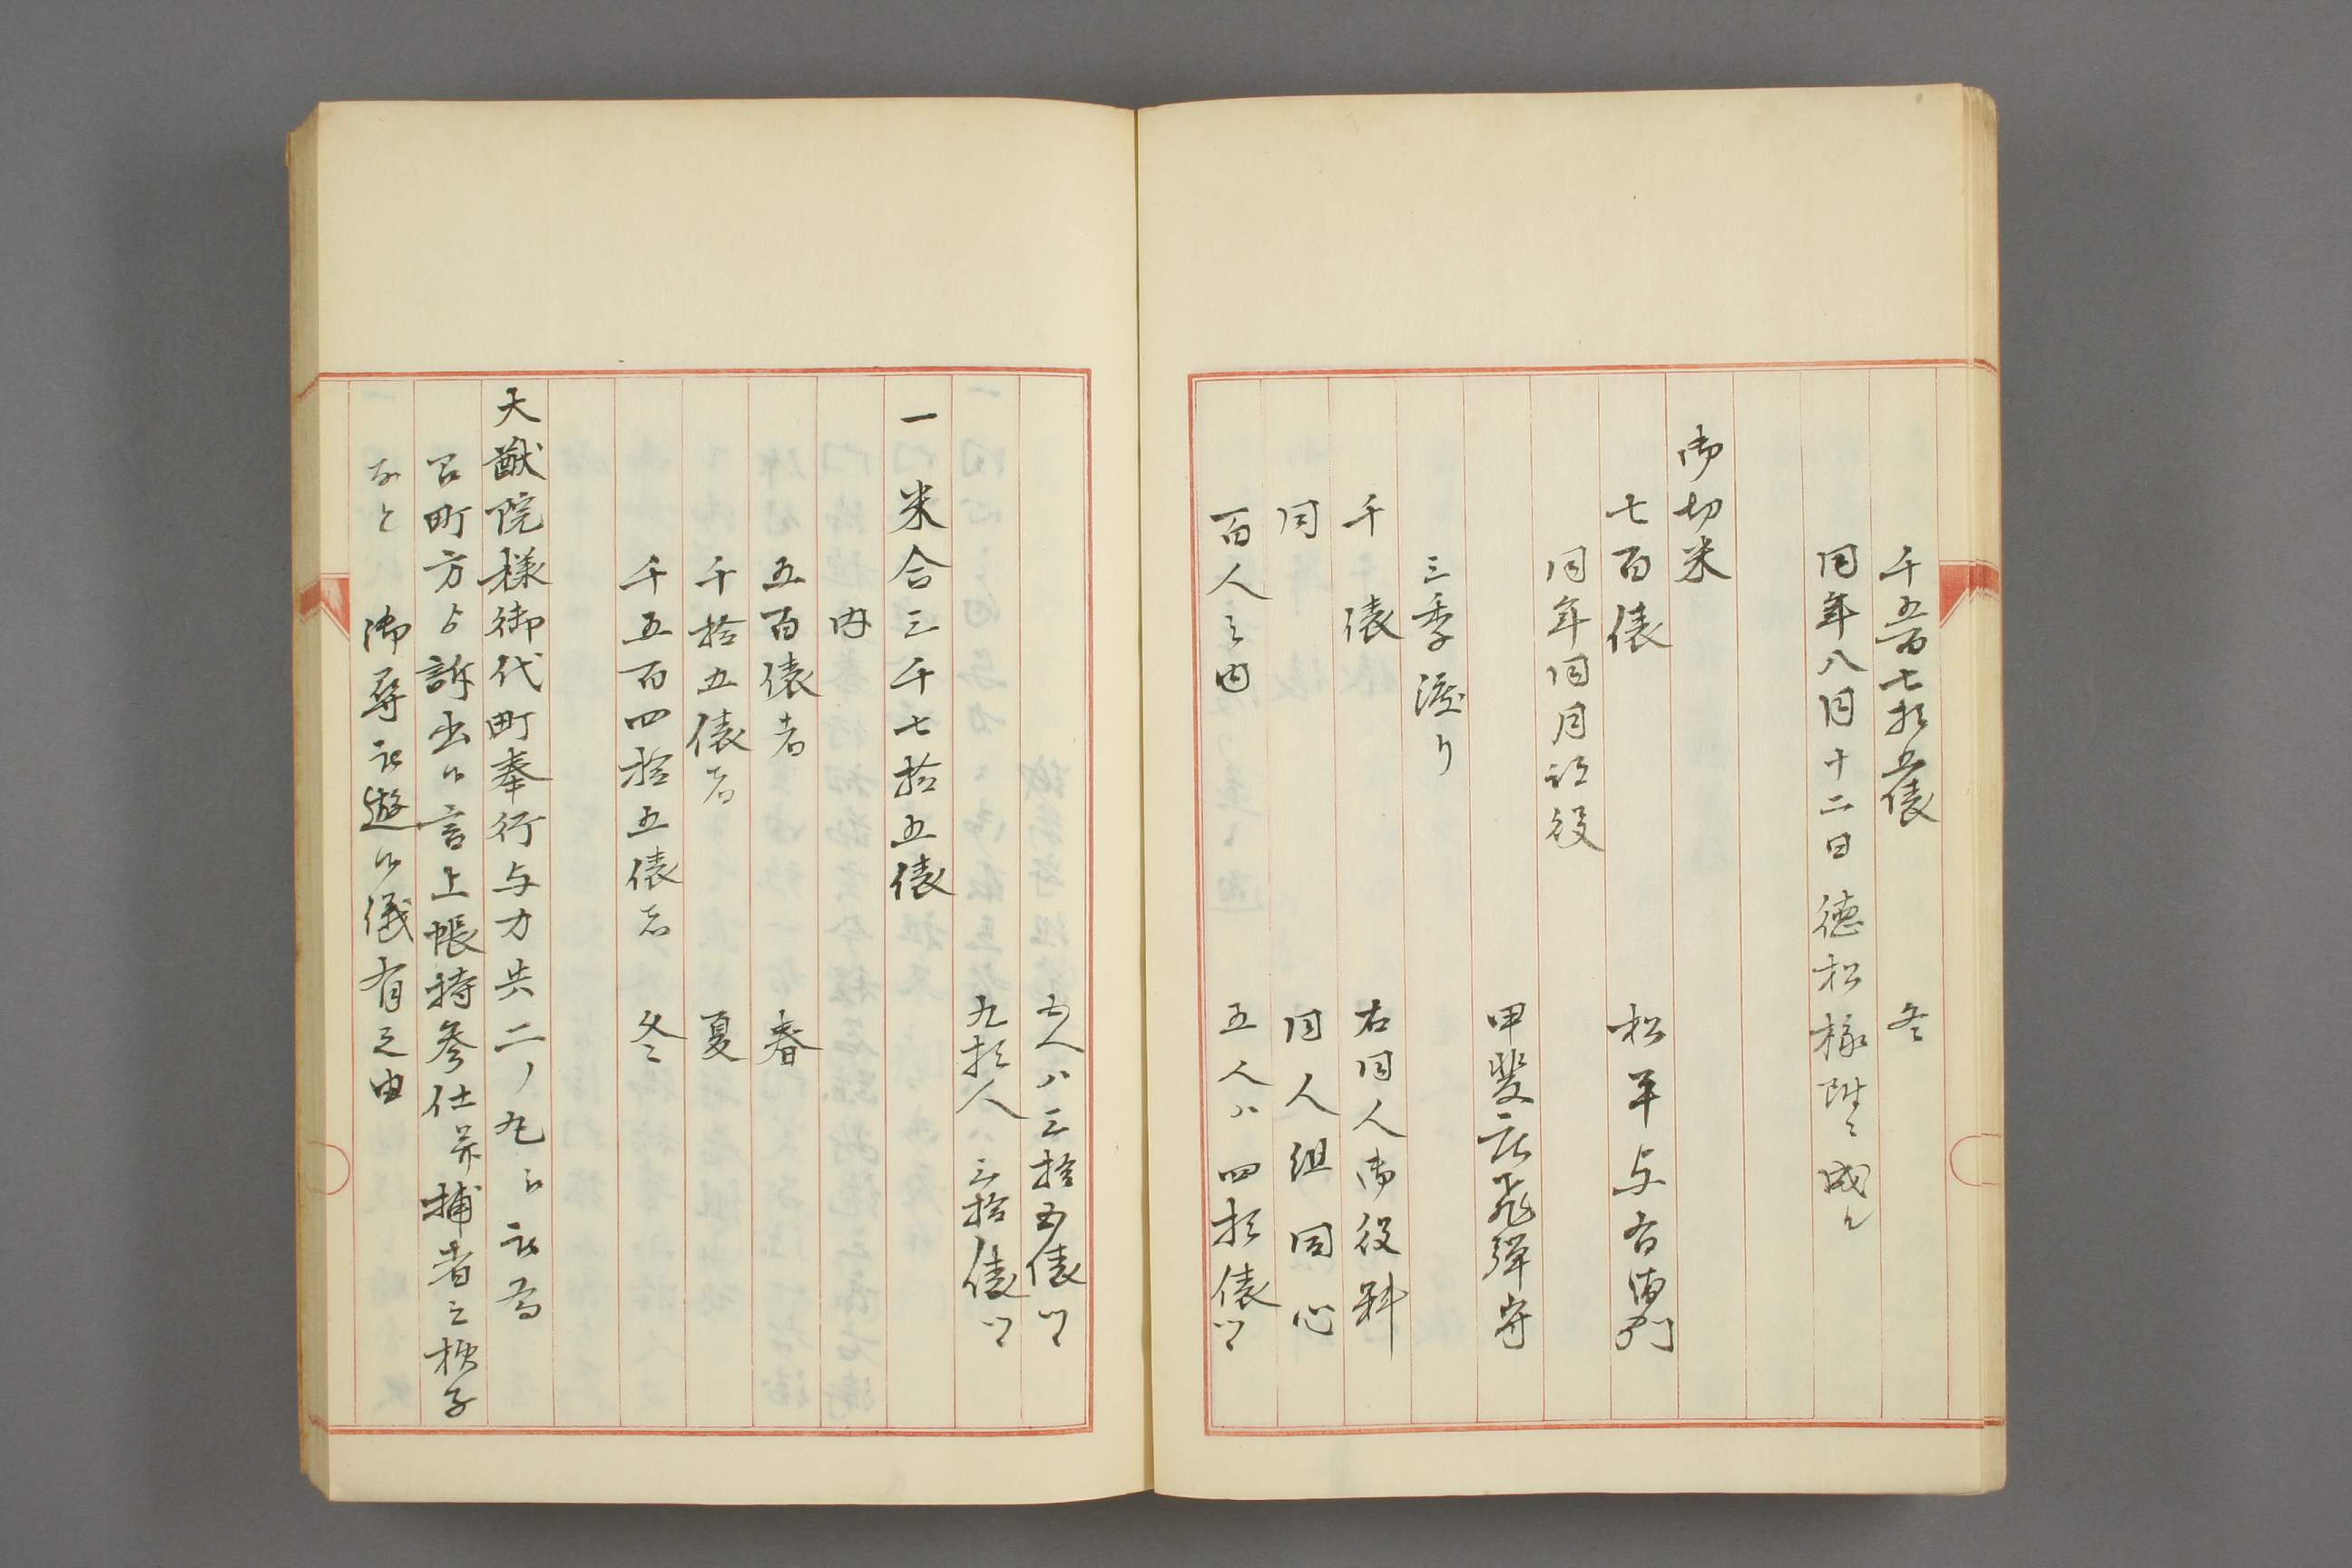 千五百七拾五俵　冬
同年八月十二日徳松様附ニ成ル
御切米
七百俵　松平与右衛門
同年同月諸役
甲斐庄飛弾守
三季渡り
千俵　右同人御役料
同　同人組同心
百人之内　五人ハ四拾俵ツヽ
五人ハ三拾五俵ツヽ
九拾人ハ三拾俵ツヽ
一　米合三千七拾五俵
内
五百俵者　春
千拾五俵者　夏
千五百四拾五俵者　冬
大猷院様御代町奉行与力共二ノ丸江被為
召町方ゟ訴出候言上帳持参仕并捕者之様子
なと　御尋被遊候儀有之由